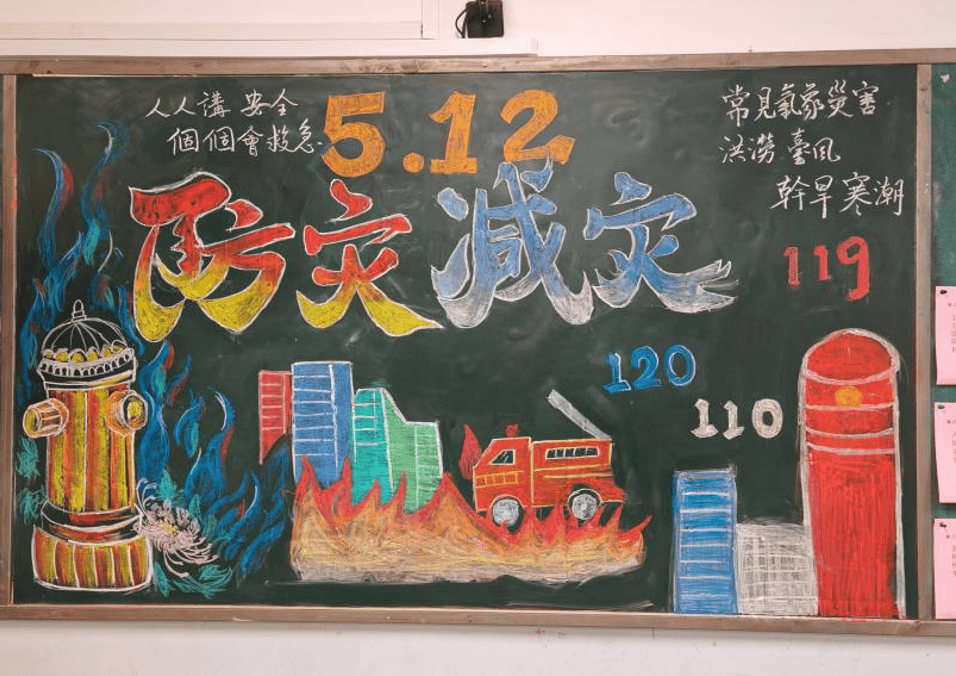 人人講 安全
個個會救急.
5.12
防灾减灾
常見氣象災害
洪澇 臺風
幹旱寒潮
119
120
110